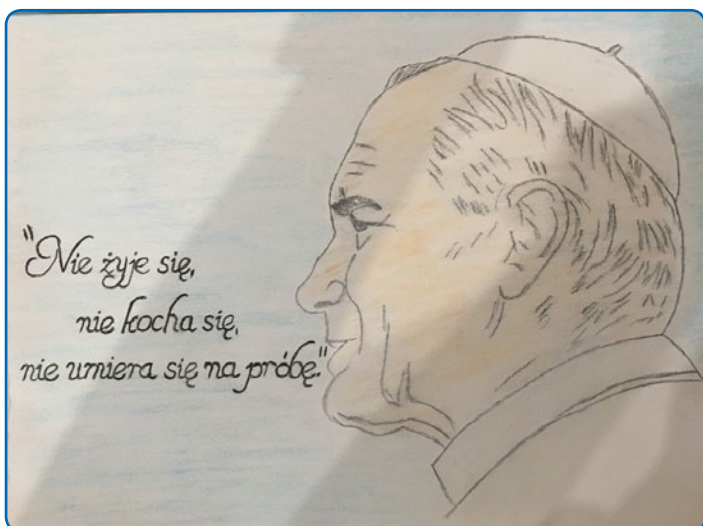 "Nie żyje się,
nie kocha się,
nie umiera się na próbę."